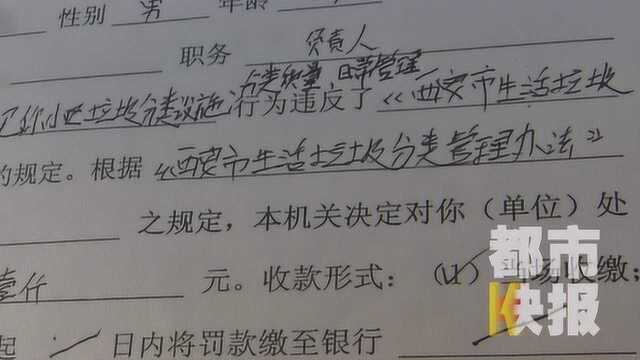 性别 男 年龄
职务 负责人
分类质量 日常管理
小区垃圾分类设施 行为违反了《西安市生活垃圾
的规定。根据《西安市生活垃圾分类管理办法》
之规定,本机关决定对你(单位)处
壹仟 元。收款形式:(1)当场收缴;
起 日内将罚款缴至银行
都市
快报